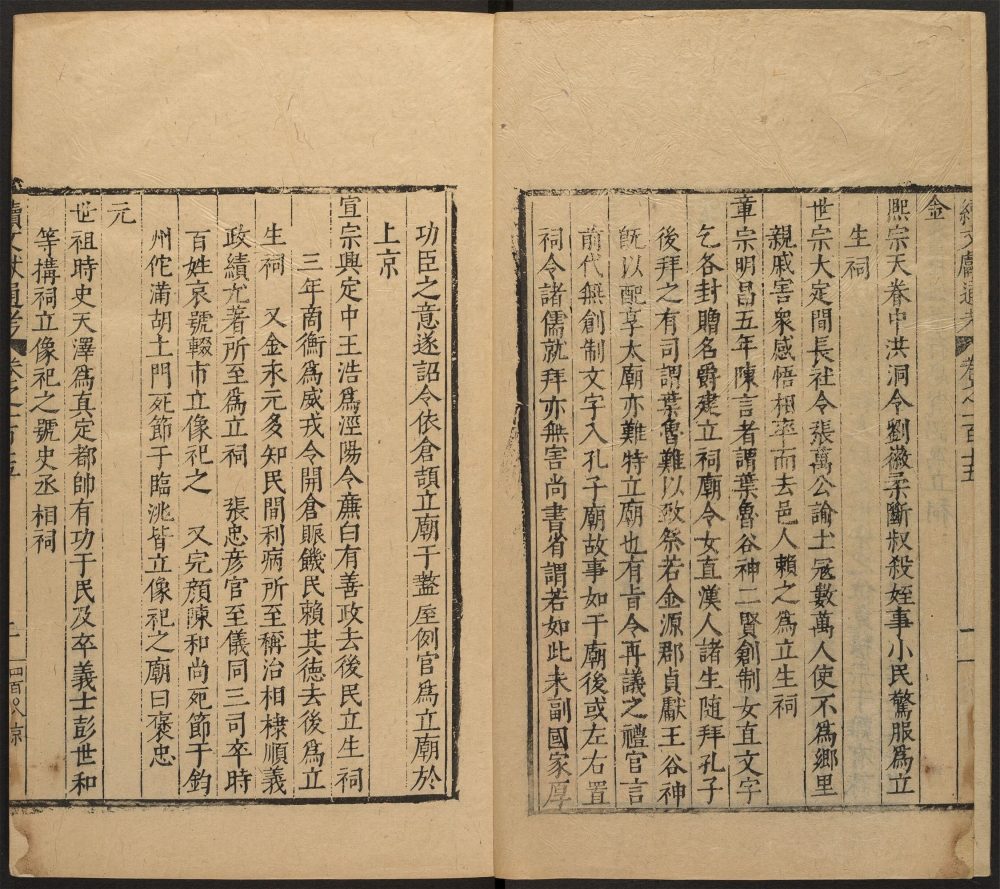 續文獻通考 卷之一百十五
金
熙宗天眷中洪洞令劉徽柔斷叔殺姪事小民驚服爲立
生祠
世宗大定間長社令張萬公諭土冦數萬人使不爲鄉里
親戚害衆感悟相率而去邑人賴之爲立生祠
章宗明昌五年陳言者謂葉魯谷神二賢創制女直文字
乞各封贈名爵建立祠廟令女直漢人諸生随拜孔子
後拜之有司謂葉魯難以致祭若金源郡貞獻王谷神
旣以配享太廟亦難特立廟也有旨令再議之禮官言
前代無創制文字入孔子廟故事如于廟後或左右置
祠令諸儒就拜亦無害尚書省謂若如此未副國家厚
功臣之意遂詔令依倉頡立廟于盩厔例官爲立廟於
上京
宣宗興定中王浩爲涇陽令亷白有善政去後民立生祠
三年商衡爲威戎令開倉賑饑民賴其德去後爲立
生祠 又金永元多知民間利病所至稱治相棣順義
政績尤著所至爲立祠 張忠彦官至儀同三司卒時
百姓哀號輟市立像祀之 又完顔陳和尚死節于鈞
州佗滿胡土門死節于臨洮皆立像祀之廟曰褒忠
元
世祖時史天澤爲真定都帥有功于民及卒義士彭世和
等搆祠立像祀之號史丞相祠
續文獻通考 卷之一百十五 二 四百〇八